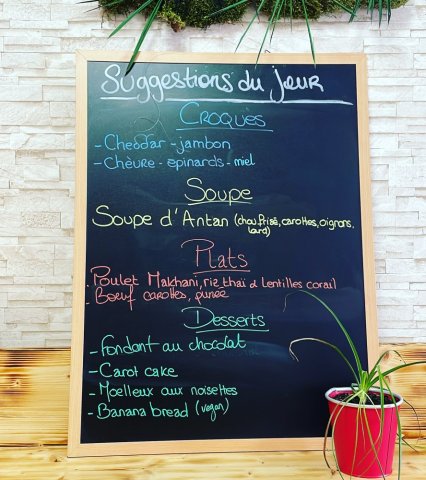 Suggestions du jour
Croques
- Cheddar - jambon
- Chèvre - épinards - miel
Soupe
Soupe d'Antan (chou frisé, carottes, oignons,
lard)
Plats
- Poulet Makhani, riz thaï & lentilles corail
- Bœuf carottes, purée
Desserts
- Fondant au chocolat
- Carot cake
- Moelleux aux noisettes
- Banana bread (vegan)